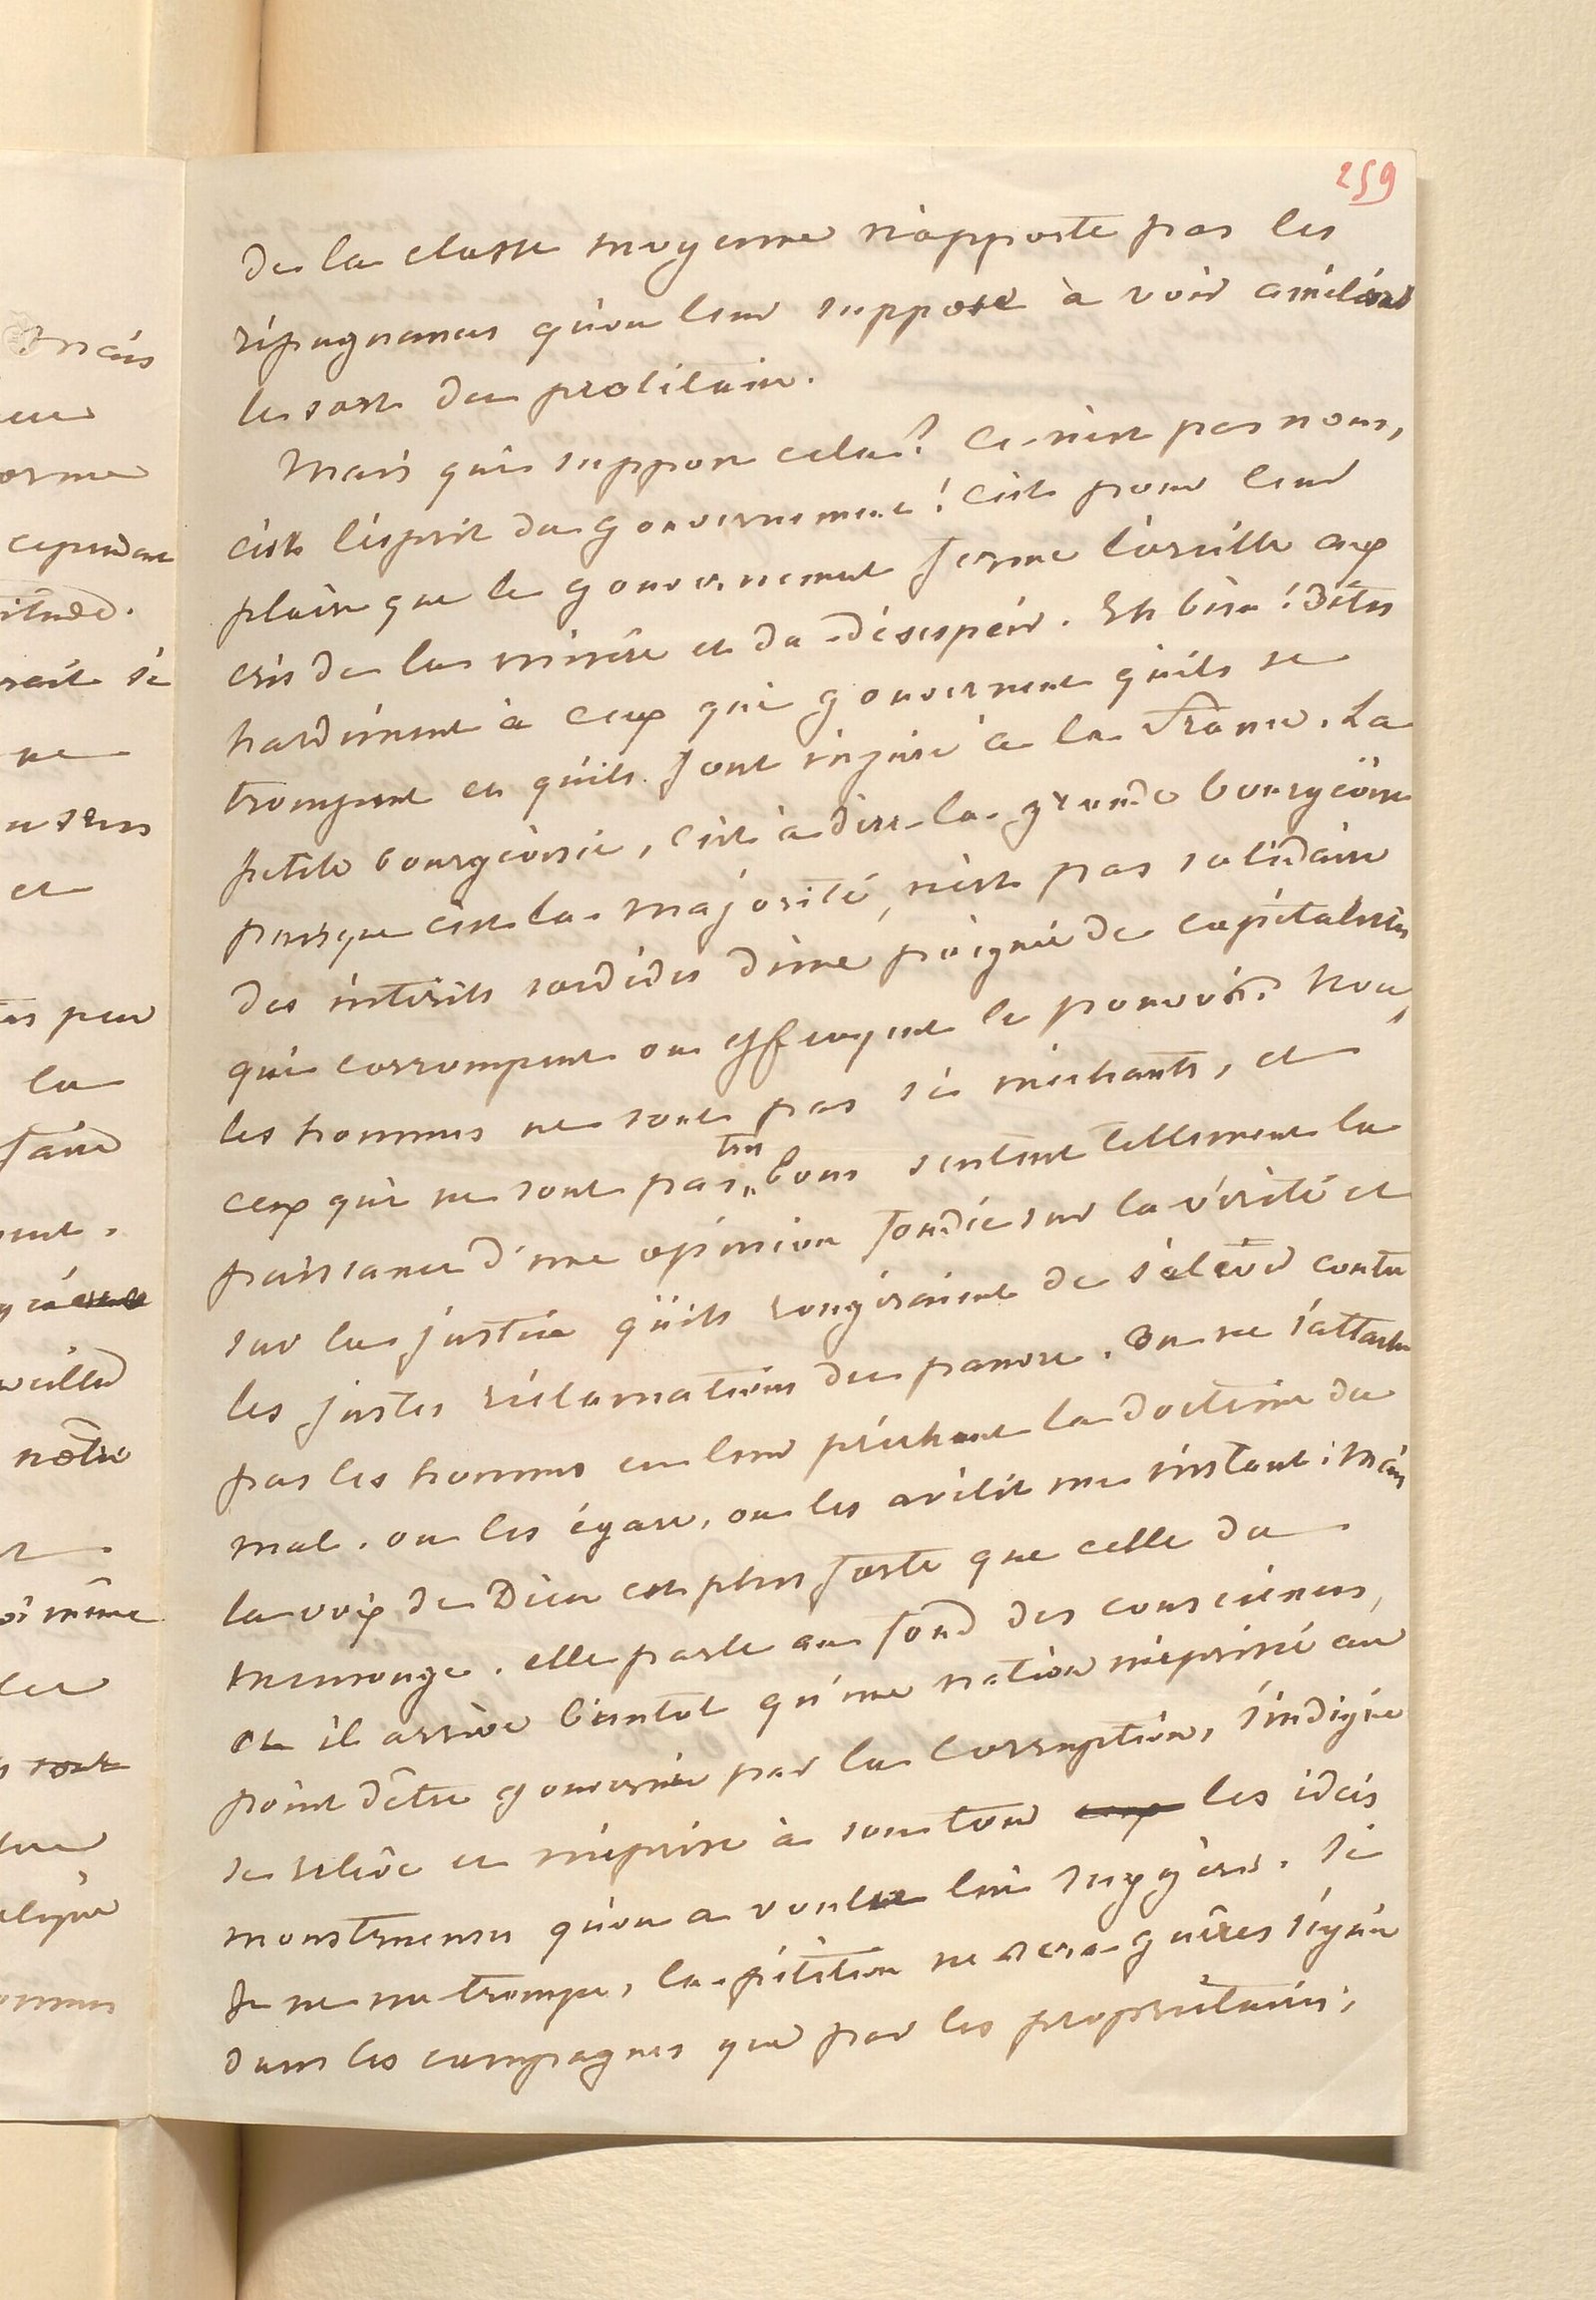 259
de la classe moyenne n'apporte pas les
répugnances qu'on leur suppose à voir améliorer
le sort du prolétaire.
Mais qui suppose cela? Ce n'est pas nous,
c'est l'esprit du gouvernement! C'est pour leur
plaire que le gouvernement ferme l'oreille aux
cris de la misère et du désespoir. Eh bien! dites
hardiment à ceux qui gouvernent qu'ils se
trompent et qu'ils font injure à la France. La
petite bourgeoisie, c'est à dire la grande bourgeoisie
puisque c'est la majorité, n'est pas solidaire
des intérêts sordides d'une poignée de capitalistes
qui corrompent ou effrayent le pouvoir. Non,
les hommes ne sont pas si méchants, et
ceux qui ne sont pas très bons sentent tellement la
puissance d'une opinion fondée sur la vérité et
sur la justice qu'ils rougiraient de s'élever contre
les justes réclamations du pauvre. On ne s'attache
pas les hommes en leur prêchant la doctrine du
mal. on les égare, on les avilit un instant; mais
la voix de Dieu est plus forte que celle du
mensonge. elle parle au fond des consciences,
et il arrive bientot qu'une nation méprisée au
point d'être gouvernée par la corruption, s'indigne
se relève et méprise à son tour les idées
monstrueuses qu'on a voulu lui suggérer. Si
je ne me trompe, la pétition ne sera guères signée
dans les campagnes que par les propriétaires,
mais
cependant
et
peu
la
faire
notre
même
sont